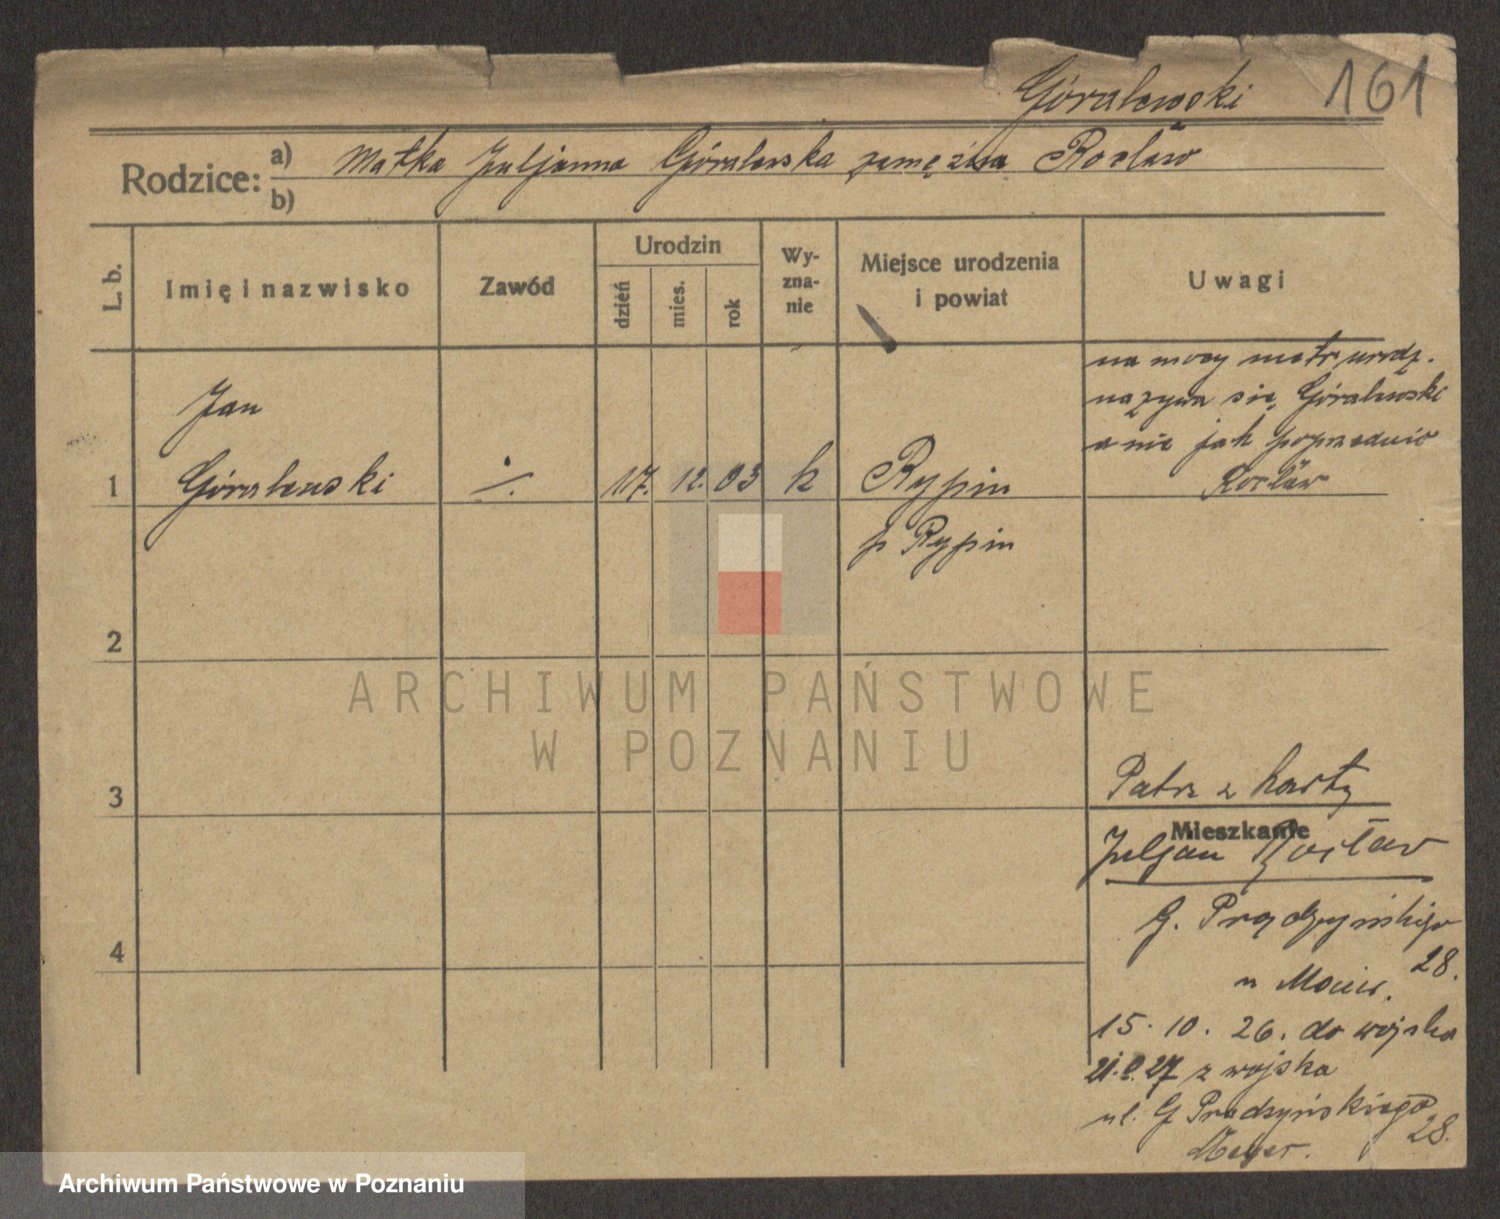 Góralewski 161
Rodzice: a) Matka Juljanna Góralewska zamężna Rocław
b)
L. b.
Imię i nazwisko
Zawód
Urodzin
dzień
mies.
rok
Wy-
zna-
nie
Miejsce urodzenia
i powiat
Uwagi
na mocy metr. urodz.
nazywa się Góralewski
a nie jak poprzednio
Rocław
Jan
1 Góralewski ./. 17. 12. 03 k Rypin
p Rypin
2
ARCHIWUM PAŃSTWOWE
W POZNANIU
3
Patrz z karty
Mieszkanie
Juljan Rocław
4
G. Prądzyńskiego
28.
u
15. 10. 26. do wojska
27 z wojska
ul. G Prądzyńskiego
28.
Meyer.
Archiwum Państwowe w Poznaniu